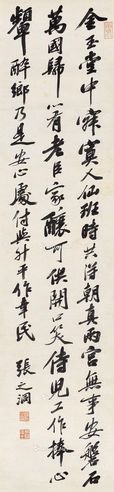 金玉堂中寂寞人仙班時共得朝真兩宮無事安磐石
萬國歸心有老臣家釀可供開口笑侍兒工作捧心
顰醉鄉乃是安心處付與升平作幸民
張之洞